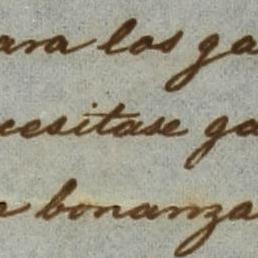 ara los ga
cesitase ga
bonanza